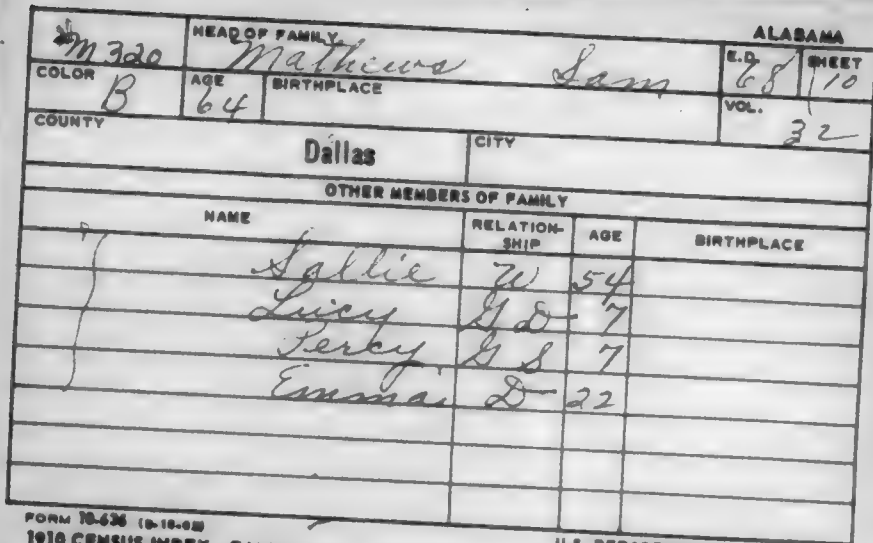 ALABAMA
M320 HEAD OF FAMILY Mathews Sam E.D. 68 SHEET 10
COLOR B AGE 64 BIRTHPLACE VOL. 32
COUNTY Dallas CITY
OTHER MEMBERS OF FAMILY
NAME RELATION-SHIP AGE BIRTHPLACE
Sallie W 54
Lucy GD 7
Percy GS 7
Emma D 22
FORM 10-636
1910 CENSUS INDEX